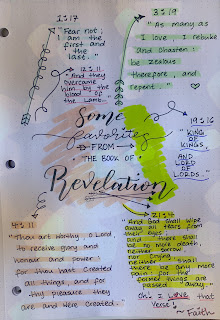 1:17
"Fear not;
I am the
first and
the last."
3:19
"As many as
I love I rebuke
and chasten:
be zealous
therefore, and
repent."
12:11
"And they
overcame
him by the
blood of
the Lamb.
Some
favorites
FROM
THE BOOK OF
Revelation
19:16
"KING OF
KINGS,
AND LORD
OF
LORDS."
4:11
"Thou art worthy O Lord
to receive glory and
honour and power:
for thou hast created
all things, and for
thy pleasure they
are and were created."
21:4
"And God shall wipe
away all tears from
their eyes; and
there shall be
no more death,
neither sorrow
nor crying,
neither shall
there be any more
pain: for the
former things are
passed away."
Oh, I LOVE that
verse!
~ Faith